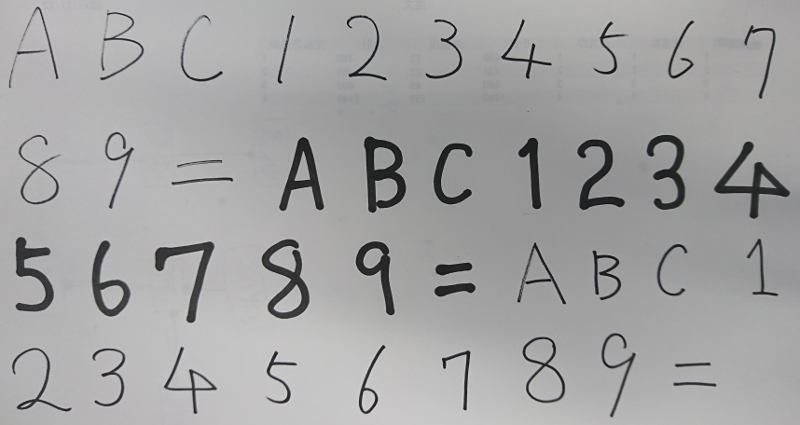 A B C 1 2 3 4 5 6 7
8 9 = A B C 1 2 3 4
5 6 7 8 9 = A B C 1
2 3 4 5 6 7 8 9 =